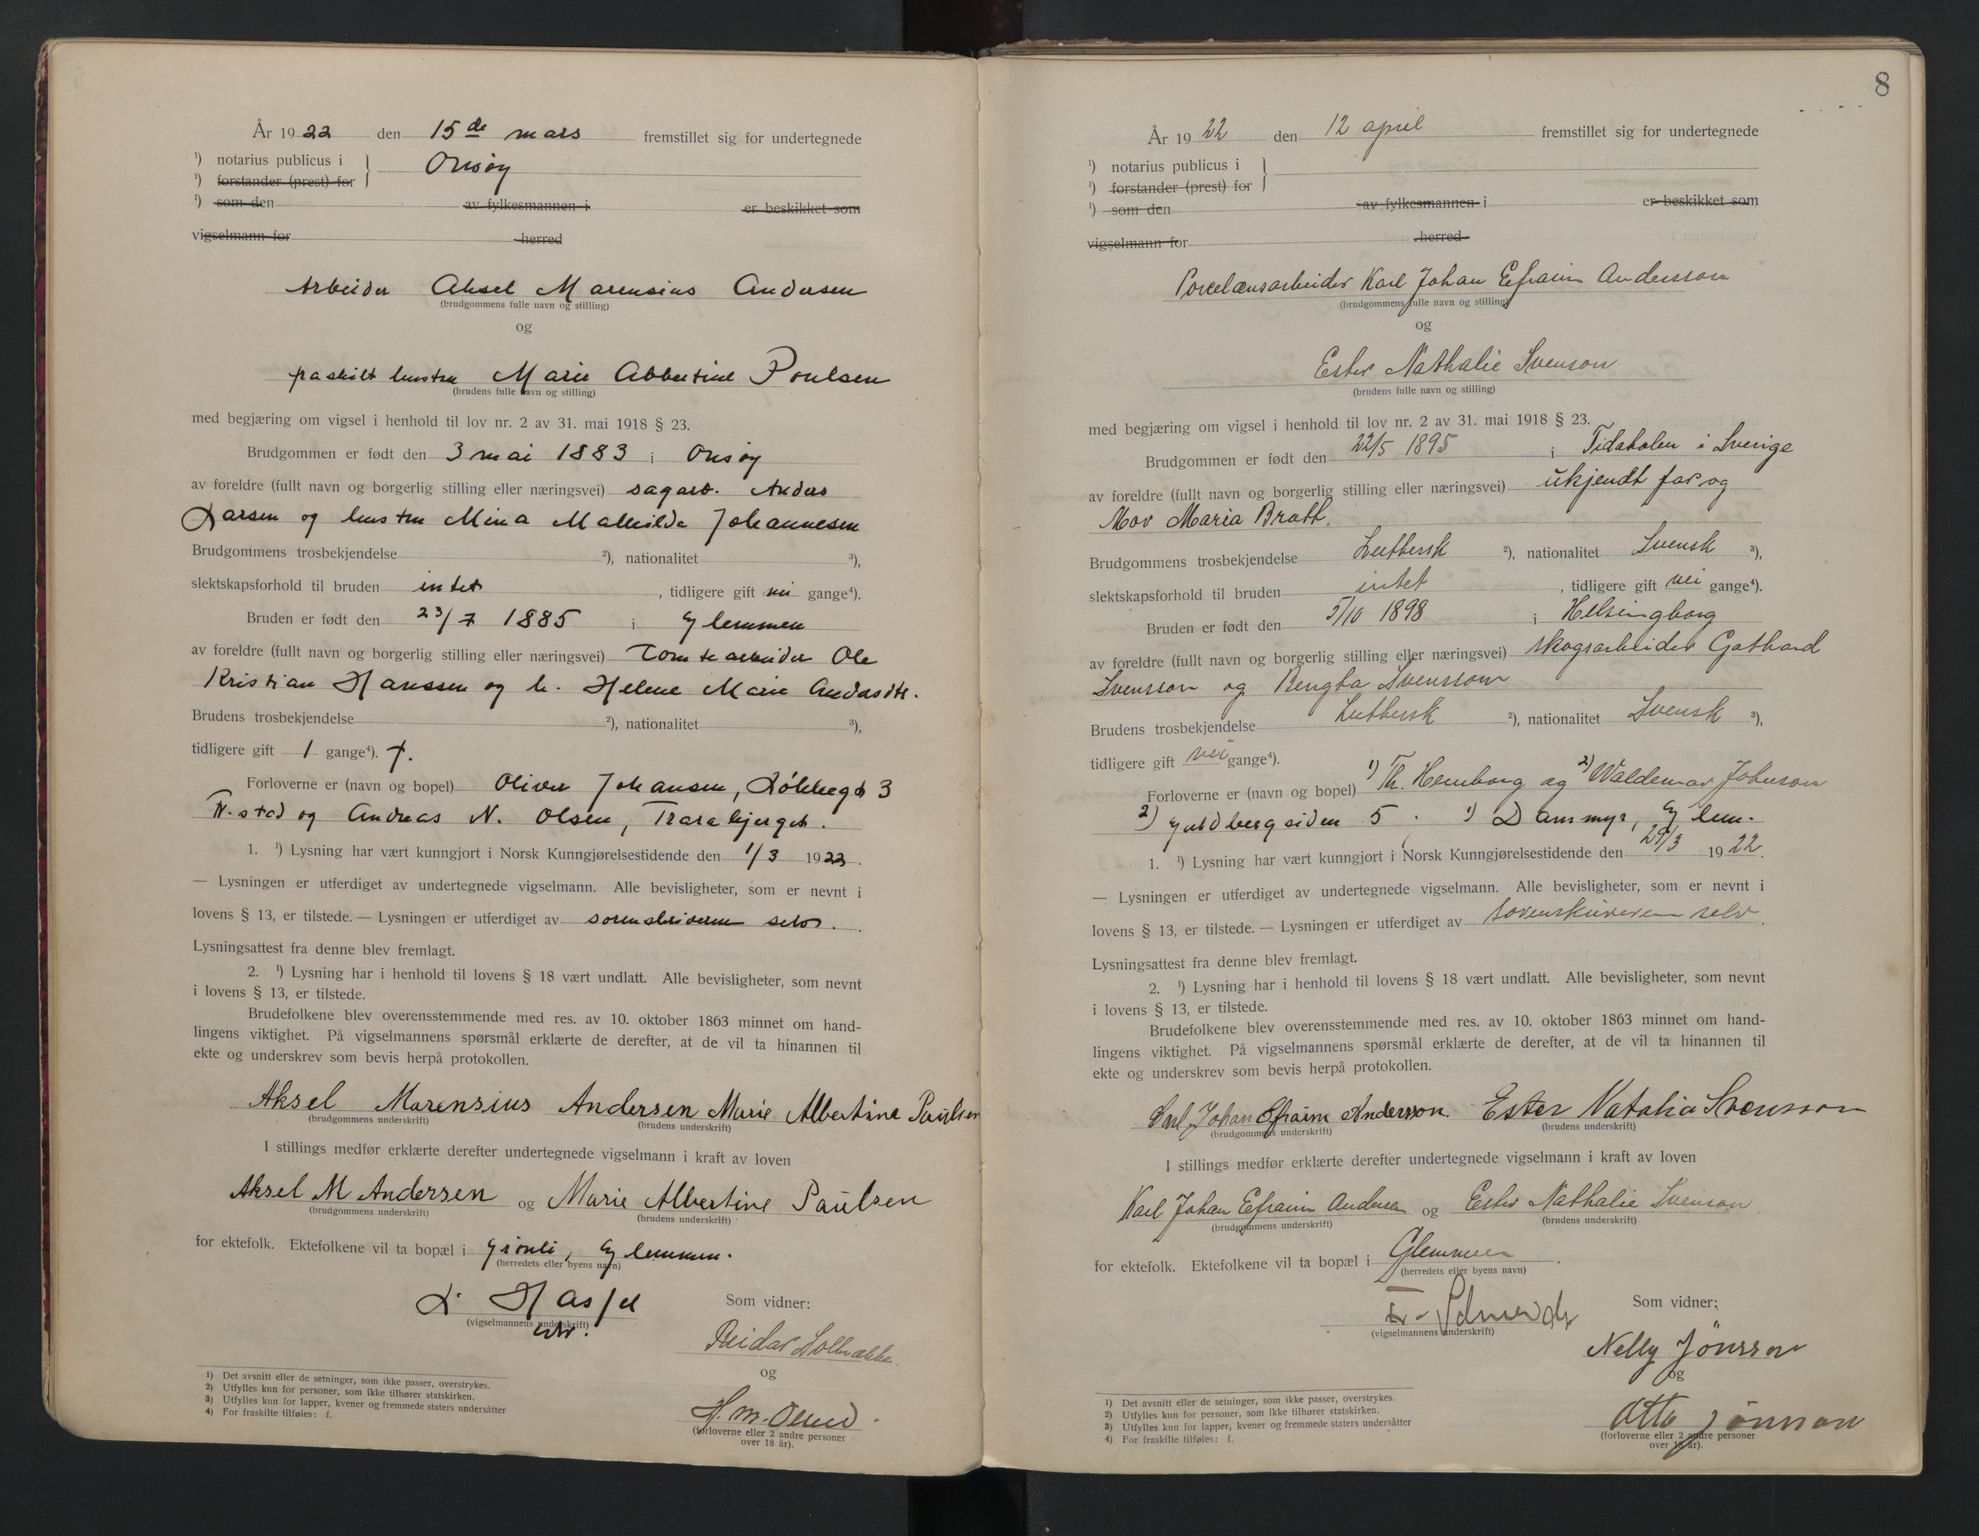 År 1922 den 15de mars fremstillet sig for undertegnede
¹) notarius publicus i } Onsøy
¹) forstander (prest) for
¹) som den av fylkesmannen i er beskikket som
vigselmann for herred
Arbeider Aksel Marensius Andersen
(brudgommens fulle navn og stilling)
og
fraskilt hustru Marie Abbertine Poulsen
(brudens fulle navn og stilling)
med begjæring om vigsel i henhold til lov nr. 2 av 31. mai 1918 § 23.
Brudgommen er født den 3 mai 1883 i Onsøy
av foreldre (fullt navn og borgerlig stilling eller næringsvei) sagarb. Anders
Larsen og hustru Mina Mathilde Johannesen
Brudgommens trosbekjendelse ²), nationalitet ³),
slektskapsforhold til bruden intet , tidligere gift nei gange⁴).
Bruden er født den 23/7 1885 i Glemmen
av foreldre (fullt navn og borgerlig stilling eller næringsvei) Tomtearbeider Ole
Kristian Hanssen og h. Helene Marie Andersdtr.
Brudens trosbekjendelse ²), nationalitet ³),
tidligere gift 1 gange⁴). f.
Forloverne er (navn og bopel) Oliver Johansen, Løkkegt 3
F.stad og Andreas N. Olsen, Trarabjerget.
1. ¹) Lysning har vært kunngjort i Norsk Kunngjørelsestidende den 1/3 1922.
— Lysningen er utferdiget av undertegnede vigselmann. Alle bevisligheter, som er nevnt i
lovens § 13, er tilstede. — Lysningen er utferdiget av sorenskriveren selv.
Lysningsattest fra denne blev fremlagt.
2. ¹) Lysning har i henhold til lovens § 18 vært undlatt. Alle bevisligheter, som nevnt
i lovens § 13, er tilstede.
Brudefolkene blev overensstemmende med res. av 10. oktober 1863 minnet om hand-
lingens viktighet. På vigselmannens spørsmål erklærte de derefter, at de vil ta hinannen til
ekte og underskrev som bevis herpå protokollen.
Aksel Marensius Andersen Marie Albertine Paulsen
(brudgommens underskrift) (brudens underskrift)
I stillings medfør erklærte derefter undertegnede vigselmann i kraft av loven
Aksel M Andersen og Marie Albertine Paulsen
(brudgommens underskrift) (brudens underskrift)
for ektefolk. Ektefolkene vil ta bopæl i Grønli, Glemmen.
(herredets eller byens navn)
Som vidner:
(vigselmannens underskrift)
Reidar
og
H. M.
(forloverne eller 2 andre personer
over 18 år).
1) Det avsnitt eller de setninger, som ikke passer, overstrykes.
2) Utfylles kun for personer, som ikke tilhører statskirken.
3) Utfylles kun for lapper, kvener og fremmede staters undersåtter
4) For fraskilte tilføies: f.
8
År 1922 den 12 april fremstillet sig for undertegnede
¹) notarius publicus i }
¹) forstander (prest) for
¹) som den av fylkesmannen i er beskikket som
vigselmann for herred
Porcelænsarbeider Karl Johan Efraim Andersson
(brudgommens fulle navn og stilling)
og
Ester Nathalie Svenson
(brudens fulle navn og stilling)
med begjæring om vigsel i henhold til lov nr. 2 av 31. mai 1918 § 23.
Brudgommen er født den 22/5 1895 i Tidaholen i Sverige
av foreldre (fullt navn og borgerlig stilling eller næringsvei) ukjendt far og
Mor Maria Bratt.
Brudgommens trosbekjendelse Luthersk ²), nationalitet Svensk ³),
slektskapsforhold til bruden intet , tidligere gift nei gange⁴).
Bruden er født den 5/10 1898 i Helsingborg
av foreldre (fullt navn og borgerlig stilling eller næringsvei) skogsarbeider Gothard
Svensson og Bengta Svensson
Brudens trosbekjendelse Luthersk ²), nationalitet Svensk ³),
tidligere gift nei gange⁴).
Forloverne er (navn og bopel) ¹) Th. Hemborg og ²) Waldemar Johnson
2) Guldbergsiden 5. ¹) Dammyr, Glem.
1. ¹) Lysning har vært kunngjort i Norsk Kunngjørelsestidende den 29/3 1922.
— Lysningen er utferdiget av undertegnede vigselmann. Alle bevisligheter, som er nevnt i
lovens § 13, er tilstede. — Lysningen er utferdiget av sorenskriveren selv.
Lysningsattest fra denne blev fremlagt.
2. ¹) Lysning har i henhold til lovens § 18 vært undlatt. Alle bevisligheter, som nevnt
i lovens § 13, er tilstede.
Brudefolkene blev overensstemmende med res. av 10. oktober 1863 minnet om hand-
lingens viktighet. På vigselmannens spørsmål erklærte de derefter, at de vil ta hinannen til
ekte og underskrev som bevis herpå protokollen.
Karl Johan Efraim Andersson. Ester Natalia Svensson
(brudgommens underskrift) (brudens underskrift)
I stillings medfør erklærte derefter undertegnede vigselmann i kraft av loven
Karl Johan Efraim Andersen og Ester Nathalie Svenson
(brudgommens underskrift) (brudens underskrift)
for ektefolk. Ektefolkene vil ta bopæl i Glemmen.
(herredets eller byens navn)
Som vidner:
(vigselmannens underskrift)
Nelly Jönsson
og
Otto Jönsson
(forloverne eller 2 andre personer
over 18 år).
1) Det avsnitt eller de setninger, som ikke passer, overstrykes.
2) Utfylles kun for personer, som ikke tilhører statskirken.
3) Utfylles kun for lapper, kvener og fremmede staters undersåtter
4) For fraskilte tilføies: f.